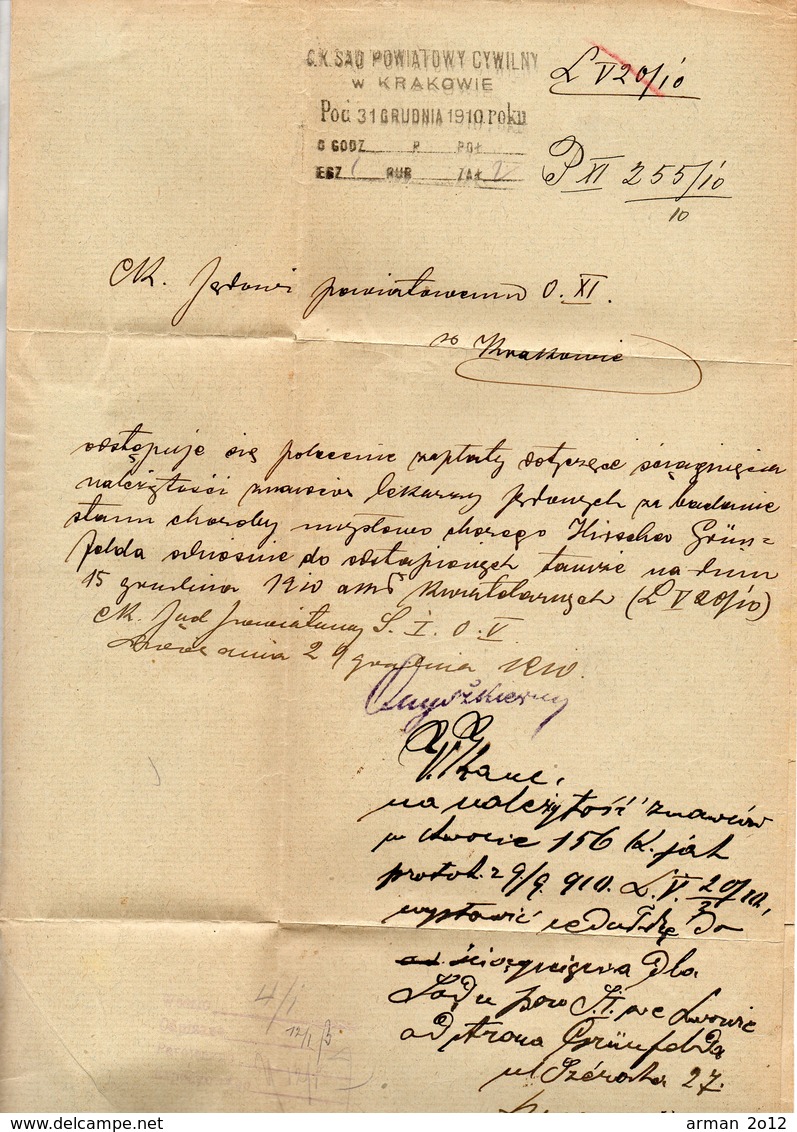 C.K. SĄD POWIATOWY CYWILNY
W KRAKOWIE
Pod 31 GRUDNIA 1910 roku
O GODZ P. POŁ
EGZ 1 RUB ZAŁ 2
L V 20/10
P XI 255/10
10
CK. Sądowi powiatowemu O. XI.
w Krakowie
odstępuje się polecenie zapłaty dotyczące ściągnięcia
należytości znawców lekarzy sądowych za badanie
stanu choroby umysłowo chorego Hirscha Grün-
felda odnośnie do odstąpionych tamże na dniu
15 grudnia 1910 aktów kuratelarnych (L V 20/10)
CK. Sąd powiatowy S. I. O. V
Lwów dnia 29 grudnia 1910.
V. Kanc.
na należytość znawców
w kwocie 156 K. jak
protok. z 9/9. 910. L. V. 20/10,
3
wystawić
ściągnięcia dla
Sądu pow S. I. we Lwowie
od Arona Grünfelda
ul Szeroka 27.
4/1
12/1
arman 2012